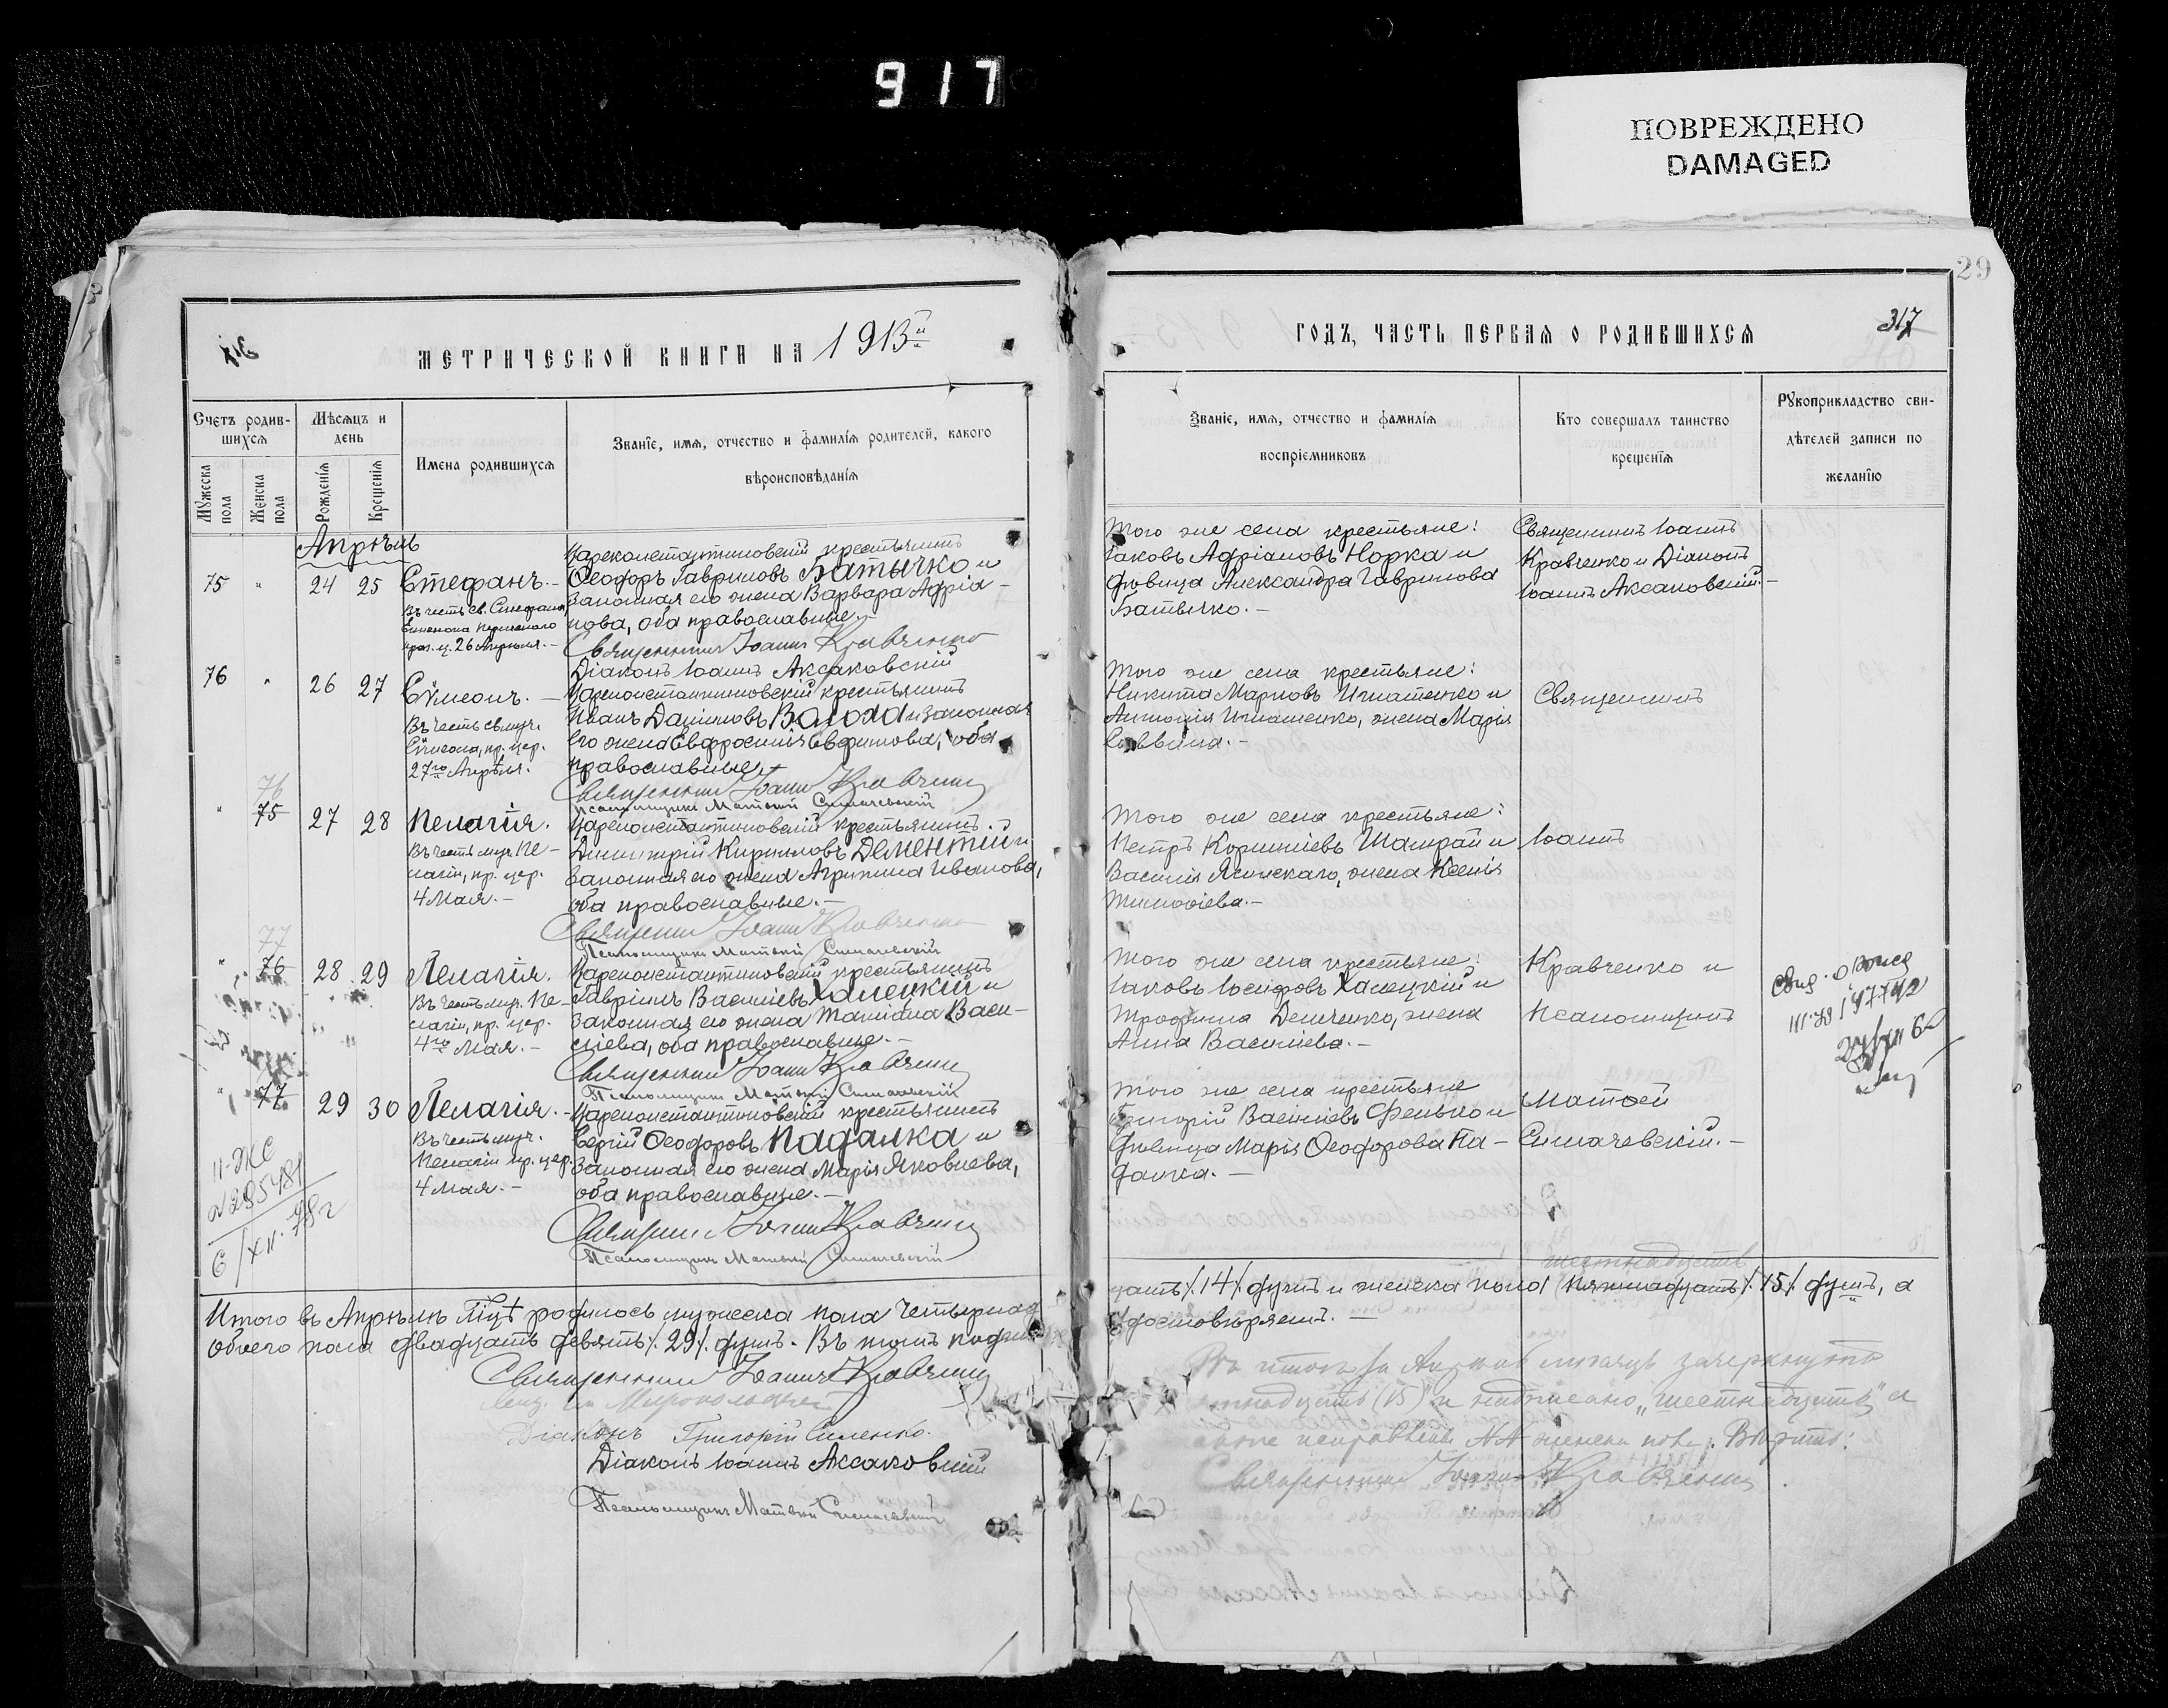 917
ПОВРЕЖДЕНО
DAMAGED
29
МЕТРИЧЕСКОЙ КНИГИ НА 1913й
ГОДЪ, ЧАСТЬ ПЕРВАЯ О РОДИВШИХСЯ
317
Счетъ родив-
шихся
Мѣсяцъ и
день
Имена родившихся
Званіе, имя, отчество и фамилія родителей, какого
вѣроисповѣданія
Мужеска
пола
Женска
пола
Рожденія
Крещенія
Званіе, имя, отчество и фамилія
воспріемниковъ
Кто совершалъ таинство
крещенія
Рукоприкладство сви-
дѣтелей записи по
желанію
Апрѣль
75 " 24 25 Стефанъ. –
Въ честь св. Стефана
Епископа Пермскаго
праз. ц. 26 Апрѣля. –
Цареконстантиновскій крестьянинъ
Ѳеодоръ Гавриловъ Батычко и
законная его жена Варвара Адріа–
нова, оба православные. –
Священникъ Іоаннъ Кравченко
Діаконъ Іоаннъ Аксаковскій
Того же села крестьяне:
Іаковъ Адріановъ Норка и
дѣвица Александра Гаврилова
Батычко. –
Священникъ Іоаннъ
Кравченко и Діаконъ
Іоаннъ Аксаковскій. –
76 " 26 27 Сѵмеонъ. –
Въ честь св. муч.
Сѵмеона, пр. цер.
27го Апрѣля.
Цареконстантиновскій крестьянинъ
Иванъ Даниловъ Волоха и законная
его жена Евфросинія Евфимова, оба
православные. –
Священникъ Іоаннъ Кравченко
Псаломщикъ Матѳей Симачевскій
Того же села крестьяне:
Никита Марковъ Игнатенко и
Антонія Игнатенко, жена Марія
Саввина. –
Священникъ
76
" 75 27 28 Пелагія.
Въ честь муч. Пе–
лагіи, пр. цер.
4 Мая. –
Цареконстантиновскій крестьянинъ
Димитрій Кирилловъ Дементій и
законная его жена Агрипина Иванова,
оба православные. –
Священникъ Іоаннъ Кравченко
Псаломщикъ Матѳей Симачевскій
Того же села крестьяне:
Петръ Корниліевъ Шамрай и
Василія Яснскаго, жена Ксенія
Тимоѳіева. –
Іоаннъ
77
" 76 28 29 Пелагія.
Въ честь муч. Пе–
лагіи, пр. цер.
4го Мая. –
Цареконстантиновскій крестьянинъ
Гавріилъ Василіевъ Халецкій и
законная его жена Татіана Васи–
ліева, оба православные. –
Священникъ Іоаннъ Кравченко
Псаломщикъ Матѳей Симачевскій
Того же села крестьяне:
Іаковъ Іосифовъ Халецкій и
Трофима Демченко, жена
Анна Василіева. –
Кравченко и
Псаломщикъ
" 77 29 30 Пелагія. –
Въ честь муч.
Пелагіи пр. цер.
4 Мая. –
Цареконстантиновскій крестьянинъ
Сергій Ѳеодоровъ Падалка и
законная его жена Марія Яковлева,
оба православные. –
Священникъ Іоаннъ Кравченко
Псаломщикъ Матѳей Симачевскій
Того же села крестьяне
Григорій Василіевъ Фенько и
дѣвица Марія Ѳеодорова Па–
далка. –
Матѳей
Симачевскій. –
II-ЖС
шестнадцать
Итого въ Апрѣлѣ мцѣ родилось мужеска пола четырнад
цать /.14/. душъ и женска пола пятнадцать /.15/. душъ, а
обоего пола двадцать девять /.29/. душъ. Въ томъ подпи
удостовѣряемъ. –
Священникъ Іоаннъ Кравченко
Діаконъ Григорій Силенко.
Діаконъ Іоаннъ Аксаковскій
Псаломщикъ Матѳей Симачевскій
Въ итогѣ за Апрѣль мѣсяцъ зачеркнуто
надцать (15)" и надписано „шестнадцать" а
исправлены №№ женска пола. Вѣрно:
Священникъ Іоаннъ Кравченко